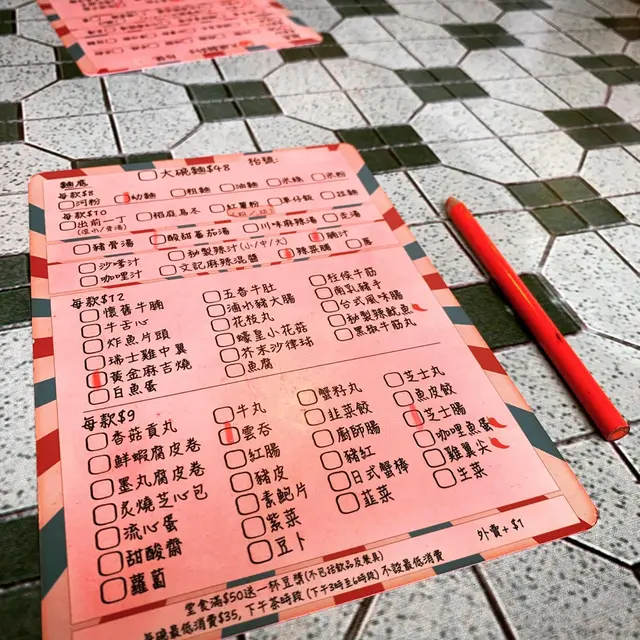 大碗麵$48 枱號:
麵底
每款$8
河粉 幼麵 粗麵 油麵 米線 米粉
每款$10
出前一丁 稻庭烏冬 紅薯粉 車仔飯
豬骨湯 酸甜蕃茄湯 川味麻辣湯
沙嗲汁 秘製辣汁(小/中/大) 辣菜脯
咖哩汁 文記麻辣混醬
每款$12
懷舊牛腩 五香牛肚 柱侯牛筋
牛舌心 滷水豬大腸 南乳豬手
炸魚片頭 花枝丸 台式風味腸
瑞士雞中翼 蠔皇小花菇 秘製辣魷魚
黃金麻吉燒 芥末沙律球 黑椒牛筋丸
白魚蛋 魚腐
每款$9
香菇貢丸 牛丸 蟹籽丸 芝士丸
鮮蝦腐皮卷 雲吞 韮菜餃 魚皮餃
墨丸腐皮卷 紅腸 廚師腸 芝士腸
炙燒芝心包 豬皮 豬紅 咖哩魚蛋
流心蛋 素鮑片 日式蟹棒 雞翼尖
甜酸齋 紫菜 韮菜 生菜
蘿蔔 豆卜
外賣+$1
堂食滿$50送一杯豆漿(不包括飲品及果具)
每碗最低消費$35, 下午茶時段(下午3時至6時段)不設最低消費